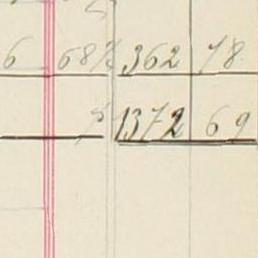 6 68½ 362 78
1372 69